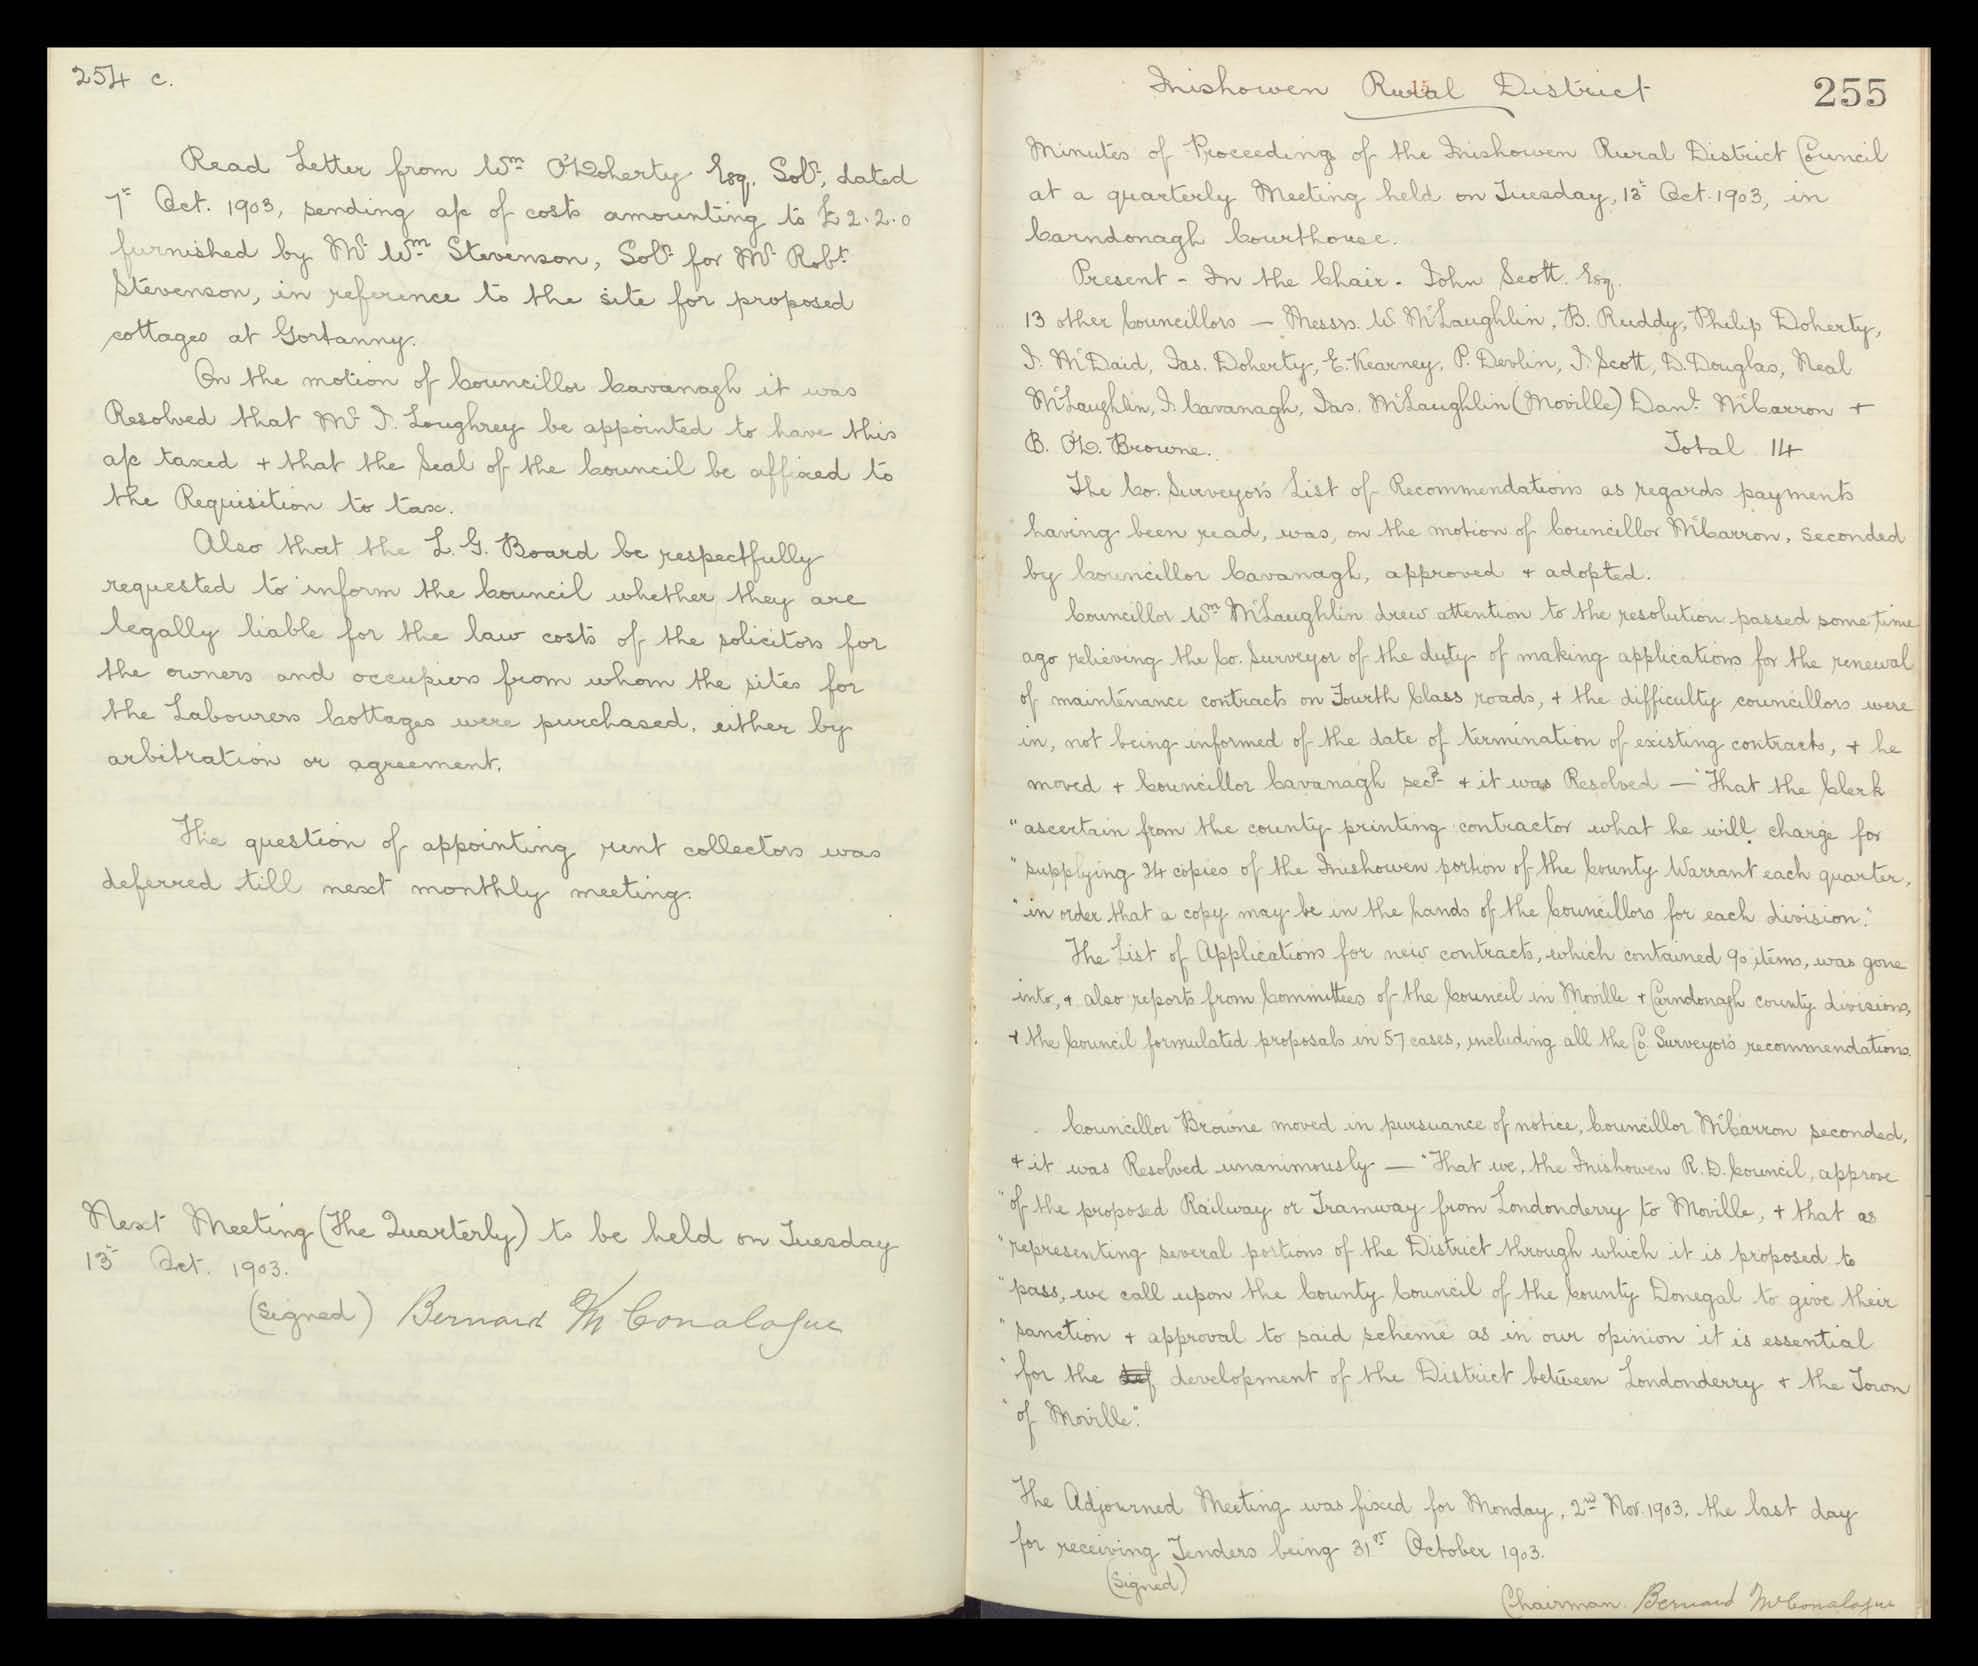 254 c.
Read Letter from Wm O'Doherty Esq. Solr, dated
7th Oct. 1903, sending a/c of costs amounting to £2.2.0
furnished by Mr Wm Stevenson, Solr for Mr Robt
Stevenson, in reference to the site for proposed
cottages at Gortanny.
On the motion of Councillor Cavanagh it was
Resolved that Mr J. Loughrey be appointed to have this
a/c taxed + that the Seal of the Council be affixed to
the Requisition to tax.
Also that the L. G. Board be respectfully
requested to inform the Council whether they are
legally liable for the law costs of the solicitors for
the owners and occupiers from whom the sites for
the Labourers Cottages were purchased, either by
arbitration or agreement.
The question of appointing rent collectors was
deferred till next monthly meeting.
Next Meeting (The Quarterly) to be held on Tuesday
13th Oct. 1903.
(signed) Bernard McConalogue
Inishowen Rural District
255
Minutes of Proceedings of the Inishowen Rural District Council
at a quarterly Meeting held on Tuesday, 13th Oct. 1903, in
Carndonagh Courthouse.
Present - In the Chair - John Scott. Esq.
13 other Councillors — Messrs. W. McLaughlin, B. Ruddy, Philip Doherty,
J. McDaid, Jas. Doherty, E. Kearney, P. Devlin, J. Scott, D. Douglas, Neal
McLaughlin, J. Cavanagh, Jas. McLaughlin (Moville) Danl. McCarron +
B. O'D. Browne. Total 14
The Co. Surveyor's List of Recommendations as regards payments
having been read, was, on the motion of Councillor McCarron, seconded
by Councillor Cavanagh, approved + adopted.
Councillor Wm McLaughlin drew attention to the resolution passed some time
ago relieving the Co. Surveyor of the duty of making applications for the renewal
of maintenance contracts on Fourth Class roads, + the difficulty councillors were
in, not being informed of the date of termination of existing contracts, + he
moved + Councillor Cavanagh secd + it was Resolved — "That the Clerk
"ascertain from the county printing contractor what he will charge for
"supplying 24 copies of the Inishowen portion of the County Warrant each quarter,
"in order that a copy may be in the hands of the Councillors for each division."
The List of Applications for new contracts, which contained 90 items, was gone
into, + also reports from Committees of the Council in Moville + Carndonagh county divisions,
+ the Council formulated proposals in 57 cases, including all the Co. Surveyor's recommendations.
Councillor Browne moved in pursuance of notice, Councillor McCarron seconded,
+ it was Resolved unanimously — "That we, the Inishowen R.D. Council, approve
"of the proposed Railway or Tramway from Londonderry to Moville, + that as
"representing several portions of the District through which it is proposed to
"pass, we call upon the County Council of the County Donegal to give their
"sanction + approval to said scheme as in our opinion it is essential
"for the development of the District between Londonderry + the Town
"of Moville."
The Adjourned Meeting was fixed for Monday, 2nd Nov. 1903, the last day
for receiving Tenders being 31st October 1903.
(Signed)
Chairman. Bernard McConalogue